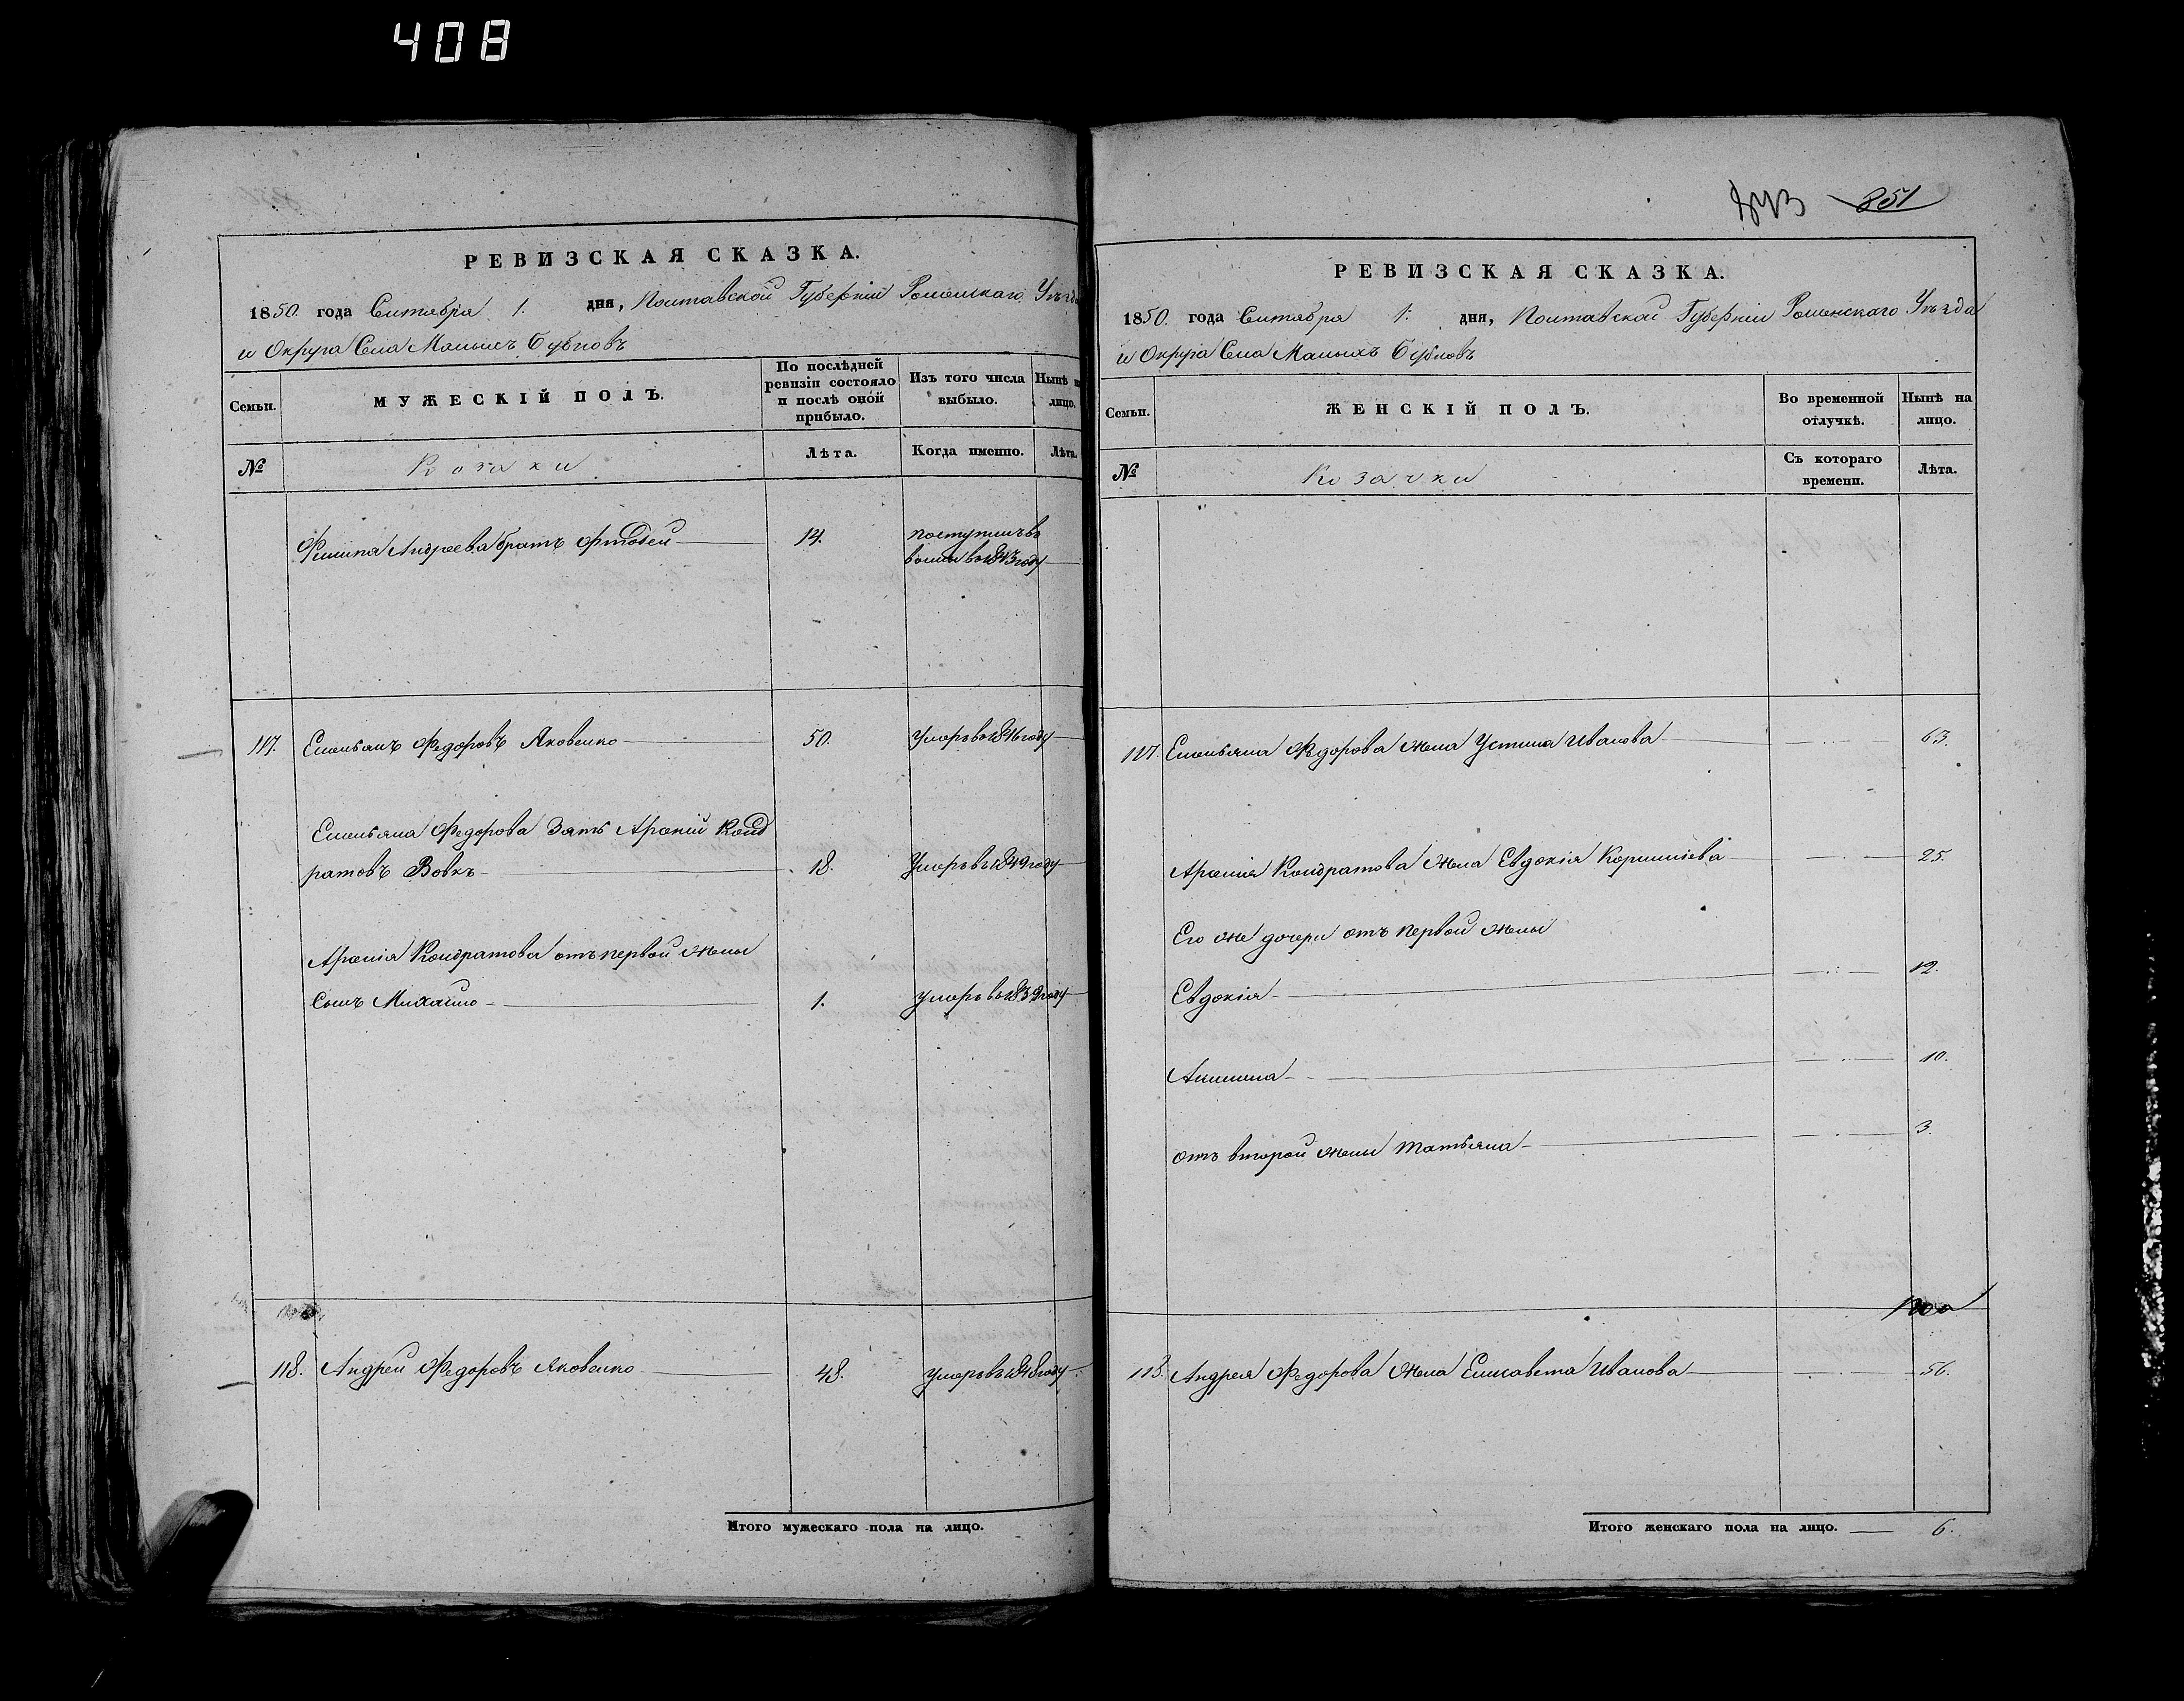 408
РЕВИЗСКАЯ СКАЗКА.
1850. года Сентября 1. дня, Полтавской Губерніи Роменскаго Уѣзда
и Округа Села Малыхъ Бубновъ
Семьи.
МУЖЕСКІЙ ПОЛЪ.
По послѣдней ревизіи состояло и послѣ оной прибыло.
Изъ того числа выбыло.
Нынѣ на лицо.
№
Козаки
Лѣта.
Когда именно.
Лѣта.
Филипа Андреева братъ 14. поступилъ въ
въ 1843 году
117. Емельянъ Федоровъ Яковенко 50. Умеръ въ 1846 году
Емельяна Федорова Зять Арсеній Конд
ратовъ Вовкъ 18. Умеръ въ 1849 году
Арсенія Кондратова отъ первой жены
Сынъ Михайло 1. умеръ въ 1839 году
118. Андрей Федоровъ Яковенко 48. умеръ въ 1848 году
Итого мужескаго пола на лицо.
351
РЕВИЗСКАЯ СКАЗКА.
1850. года Сентября 1. дня, Полтавской Губерніи Роменскаго Уѣзда
и Округа Села Малыхъ Бубновъ
Семьи.
ЖЕНСКІЙ ПОЛЪ.
Во временной отлучкѣ.
Нынѣ на лицо.
№
Козачки
Съ котораго времени.
Лѣта.
117. Емельяна Федорова жена Устина Иванова 63.
Арсенія Кондратова жена Евдокія Корниліева 25.
Его же дочери отъ первой жены
Евдокія 12.
Акилина 10.
отъ второй жены Татьяна 3.
118. Андрея Федорова жена Елисавета Иванова 56.
Итого женскаго пола на лицо. 6.